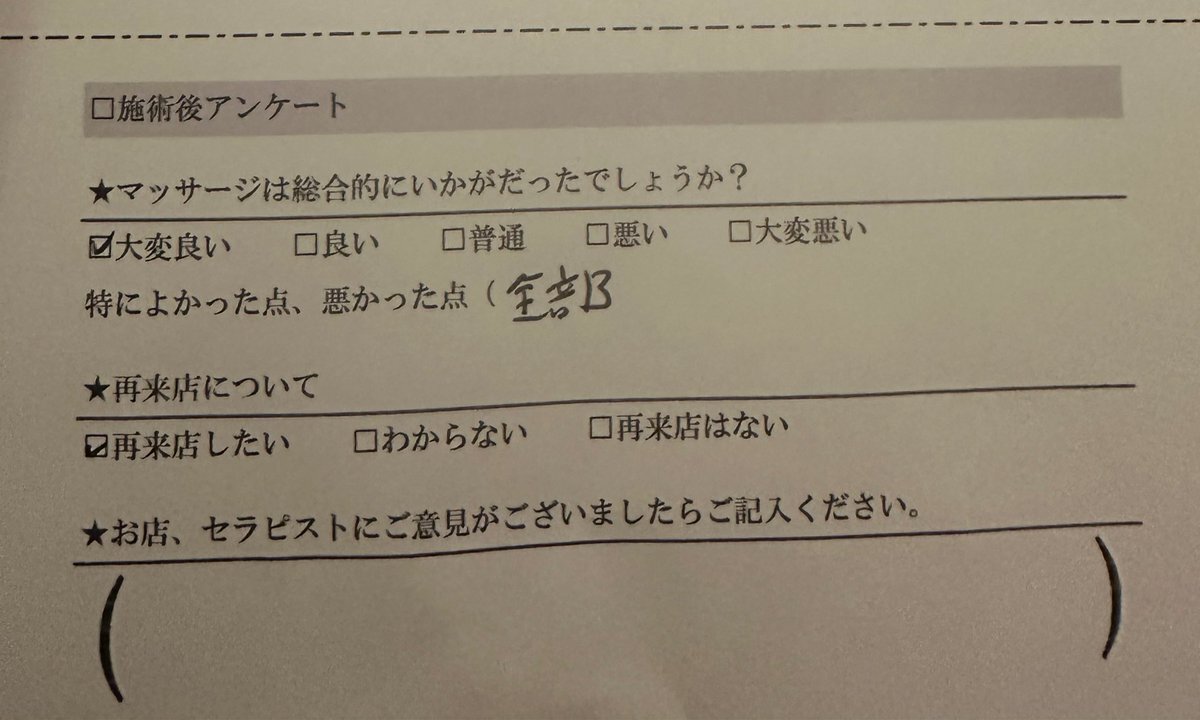 □施術後アンケート
★マッサージは総合的にいかがだったでしょうか？
☑大変良い □良い □普通 □悪い □大変悪い
特によかった点、悪かった点（全部
★再来店について
☑再来店したい □わからない □再来店はない
★お店、セラピストにご意見がございましたらご記入ください。
（ ）